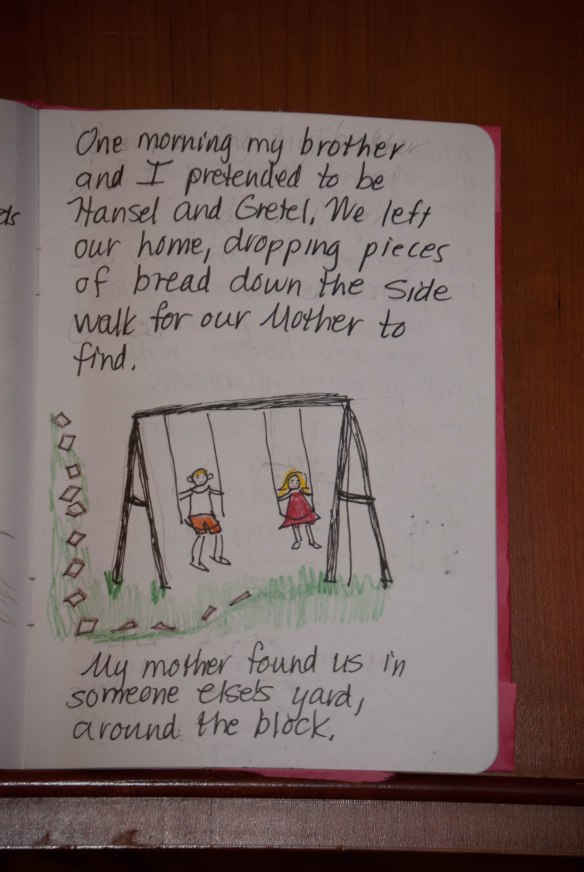 ds
One morning my brother
and I pretended to be
Hansel and Gretel. We left
our home, dropping pieces
of bread down the side
walk for our Mother to
find.
My mother found us in
someone else's yard,
around the block.